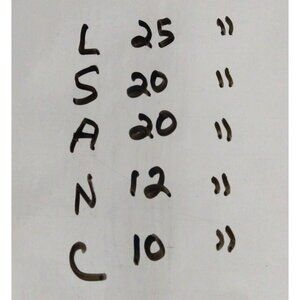 L 25 "
S 20 "
A 20 "
N 12 "
C 10 "